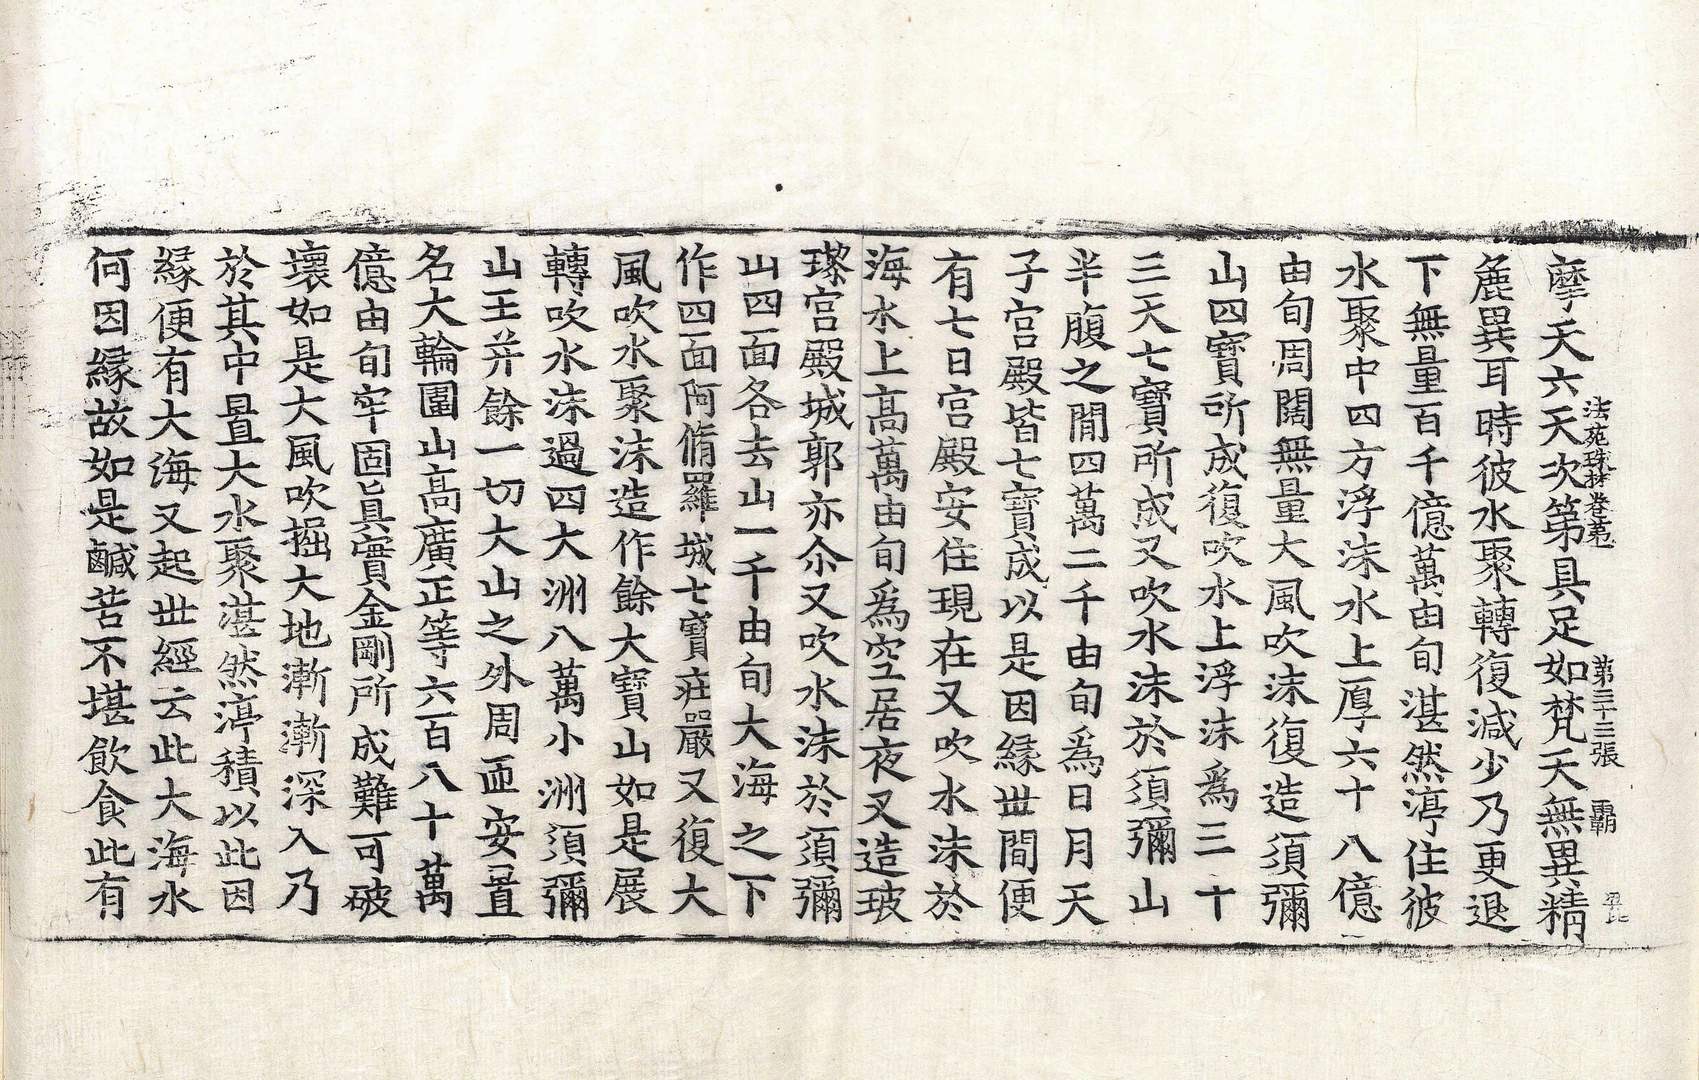 法苑珠林卷第一 第三十三張 覇
孽天六天次第具足如梵天無異精
麁異耳時彼水聚轉復減少乃更退
下無量百千億萬由旬湛然渟住彼
水聚中四方浮沫水上厚六十八億
由旬周闊無量大風吹沫復造須彌
山四寶所成復吹水上浮沫爲三十
三天七寶所成又吹水沫於須彌山
半腹之間四萬二千由旬爲日月天
子宮殿皆七寶成以是因縁丗間便
有七日宮殿安住現在又吹水沫於
海水上高萬由旬爲空居夜叉造玻
瓈宮殿城郭亦尒又吹水沫於須彌
山四面各去山一千由旬大海之下
作四面阿脩羅城七寶莊嚴又復大
風吹水聚沫造作餘大寶山如是展
轉吹水沫過四大洲八萬小洲須彌
山王并餘一切大山之外周匝安置
名大輪圍山高廣正等六百八十萬
億由旬牢固眞實金剛所成難可破
壞如是大風吹掘大地漸漸深入乃
於其中置大水聚湛然渟積以此因
縁便有大海又起丗經云此大海水
何因縁故如是鹹苦不堪飲食此有